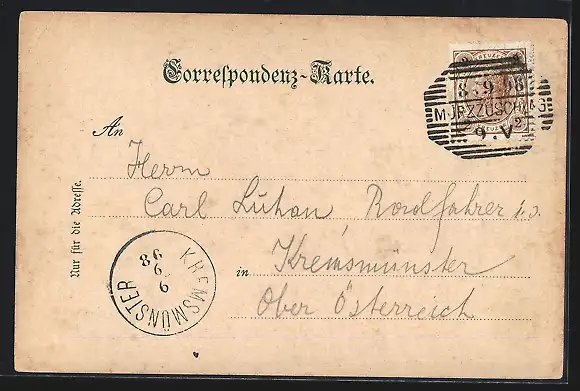 Correspondenz-Karte.
KREUZER
8.9.98
MÜRZZUSCHLAG
9.V
An
Herrn
Carl Luhan Radfahrer i.d.
in Kremsmünster
Ober Österreich
Nur für die Adresse.
KREMSMÜNSTER
9 9 98